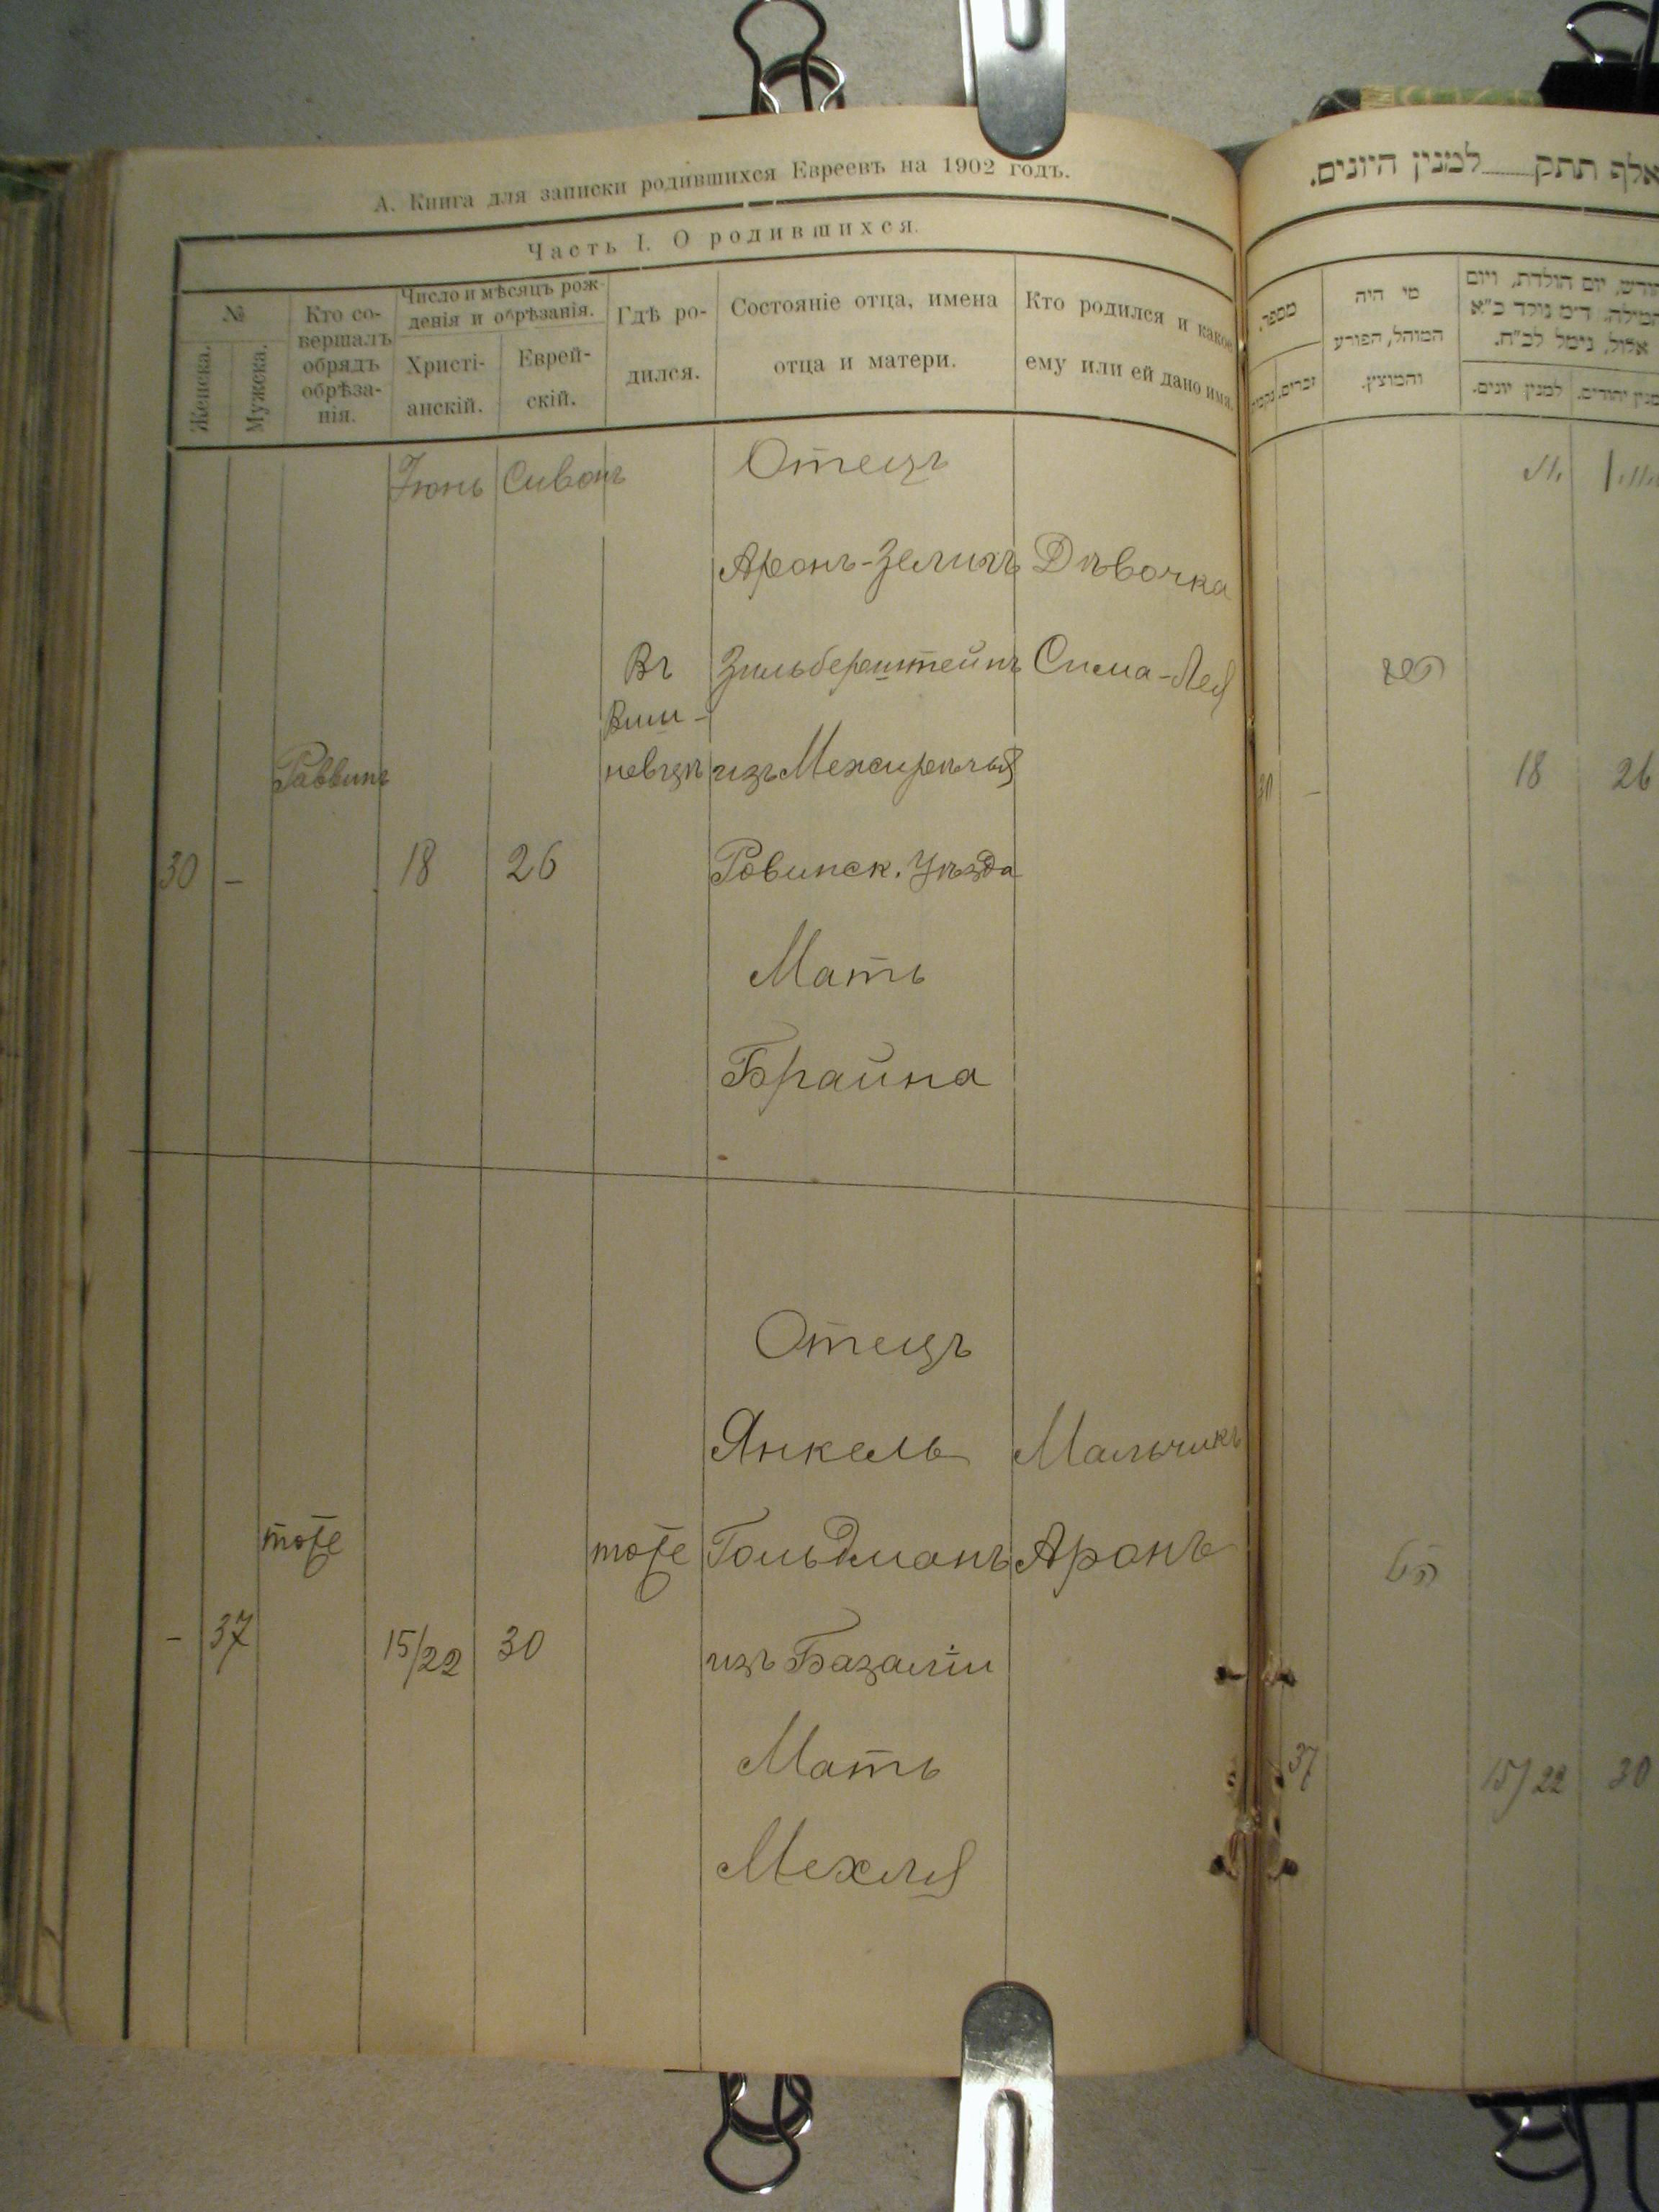 А. Книга для записки родившихся Евреевъ на 1902 годъ.
Часть I. О родившихся.
№
Женска.
Мужска.
Кто со-
вершалъ
обрядъ
обрѣза-
нія.
Число и мѣсяцъ рож-
денія и обрѣзанія.
Христі-
анскій.
Еврей-
скій.
Гдѣ ро-
дился.
Состояніе отца, имена
отца и матери.
Кто родился и какое
ему или ей дано имя.
Іюнь Сиванъ
Отецъ
Аронъ-Зелигъ Дѣвочка
Въ Зильберштейнъ Сима-Лея
Виш-
Раввинъ
невцѣ изъ Межиречья
30 – 18 26 Ровинск. Уѣзда
Мать
Брайна
Отецъ
Янкель Мальчикъ
тоже тоже Гольдманъ Аронъ
– 37 15/22 30 изъ Базаліи
Мать
Мехля
אלף תתק למנין היונים.
מספר.
זכרים. נקבות
מי היה
המוהל, הפורע
והמוצץ.
חודש, יום הולדת, ויום
המילה. ד״מ נולד כ״א
אלול, נימל לכ״ח.
למנין יונים. למנין יהודים.
30 – 18 26
37 15/22 30